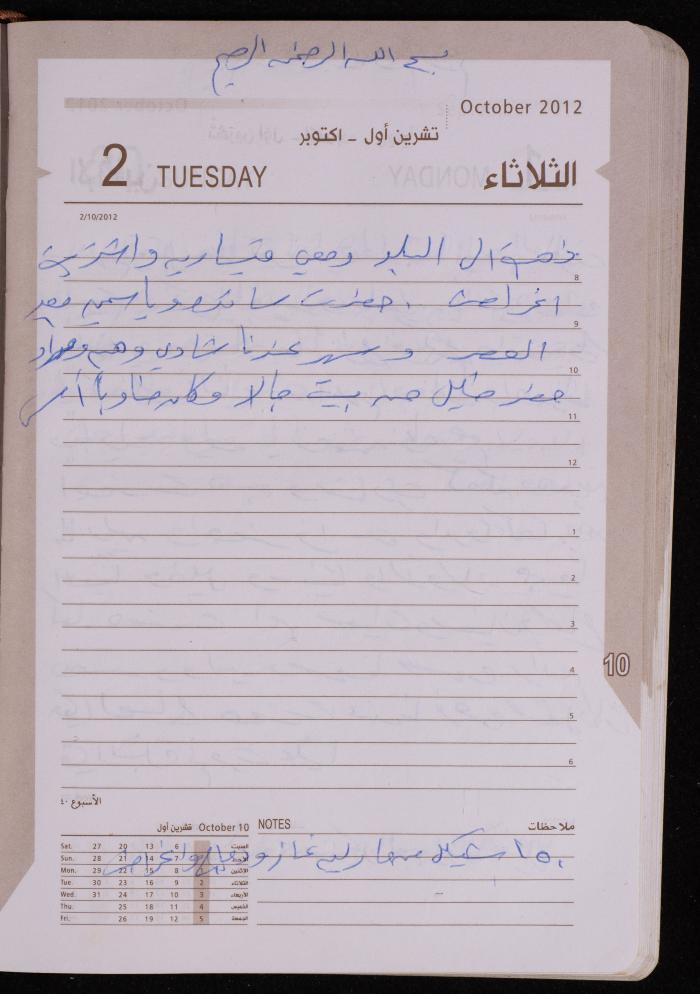 بسم الله الرحمن الرحيم
October 2012
تشرين أول - اكتوبر
2 TUESDAY الثلاثاء
2/10/2012
ال البلد ومعي واشتريت
8
اغراض . حضرت وياسمين بعد
9
العصر وسهر عندنا شادي
10
حضر خليل من بيت جالا وكان
11
12
1
2
3
4
10
5
6
الأسبوع ٤٠
تشرين أول October 10
NOTES ملاحظات
١٥٠ شيكل مصاريف غاز واغراض
Sat. 27 20 13 6 السبت
Sun. 28 21 14 7 الأحد
Mon. 29 22 15 8 1 الاثنين
Tue. 30 23 16 9 2 الثلاثاء
Wed. 31 24 17 10 3 الأربعاء
Thu. 25 18 11 4 الخميس
Fri. 26 19 12 5 الجمعة